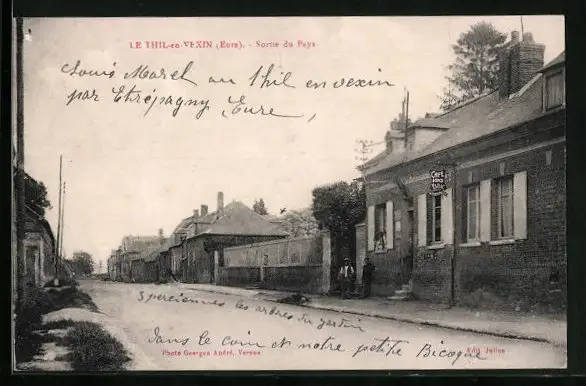 LE THIL-en-VEXIN (Eure). - Sortie du Pays
Louis Morel au Thil en vexin
par Etrépagny (Eure),
CAFÉ
3 persiennes les arbres du jardin
dans le coin et notre petite Bicoque
Photo Georges André, Vernon
Edit. Julien